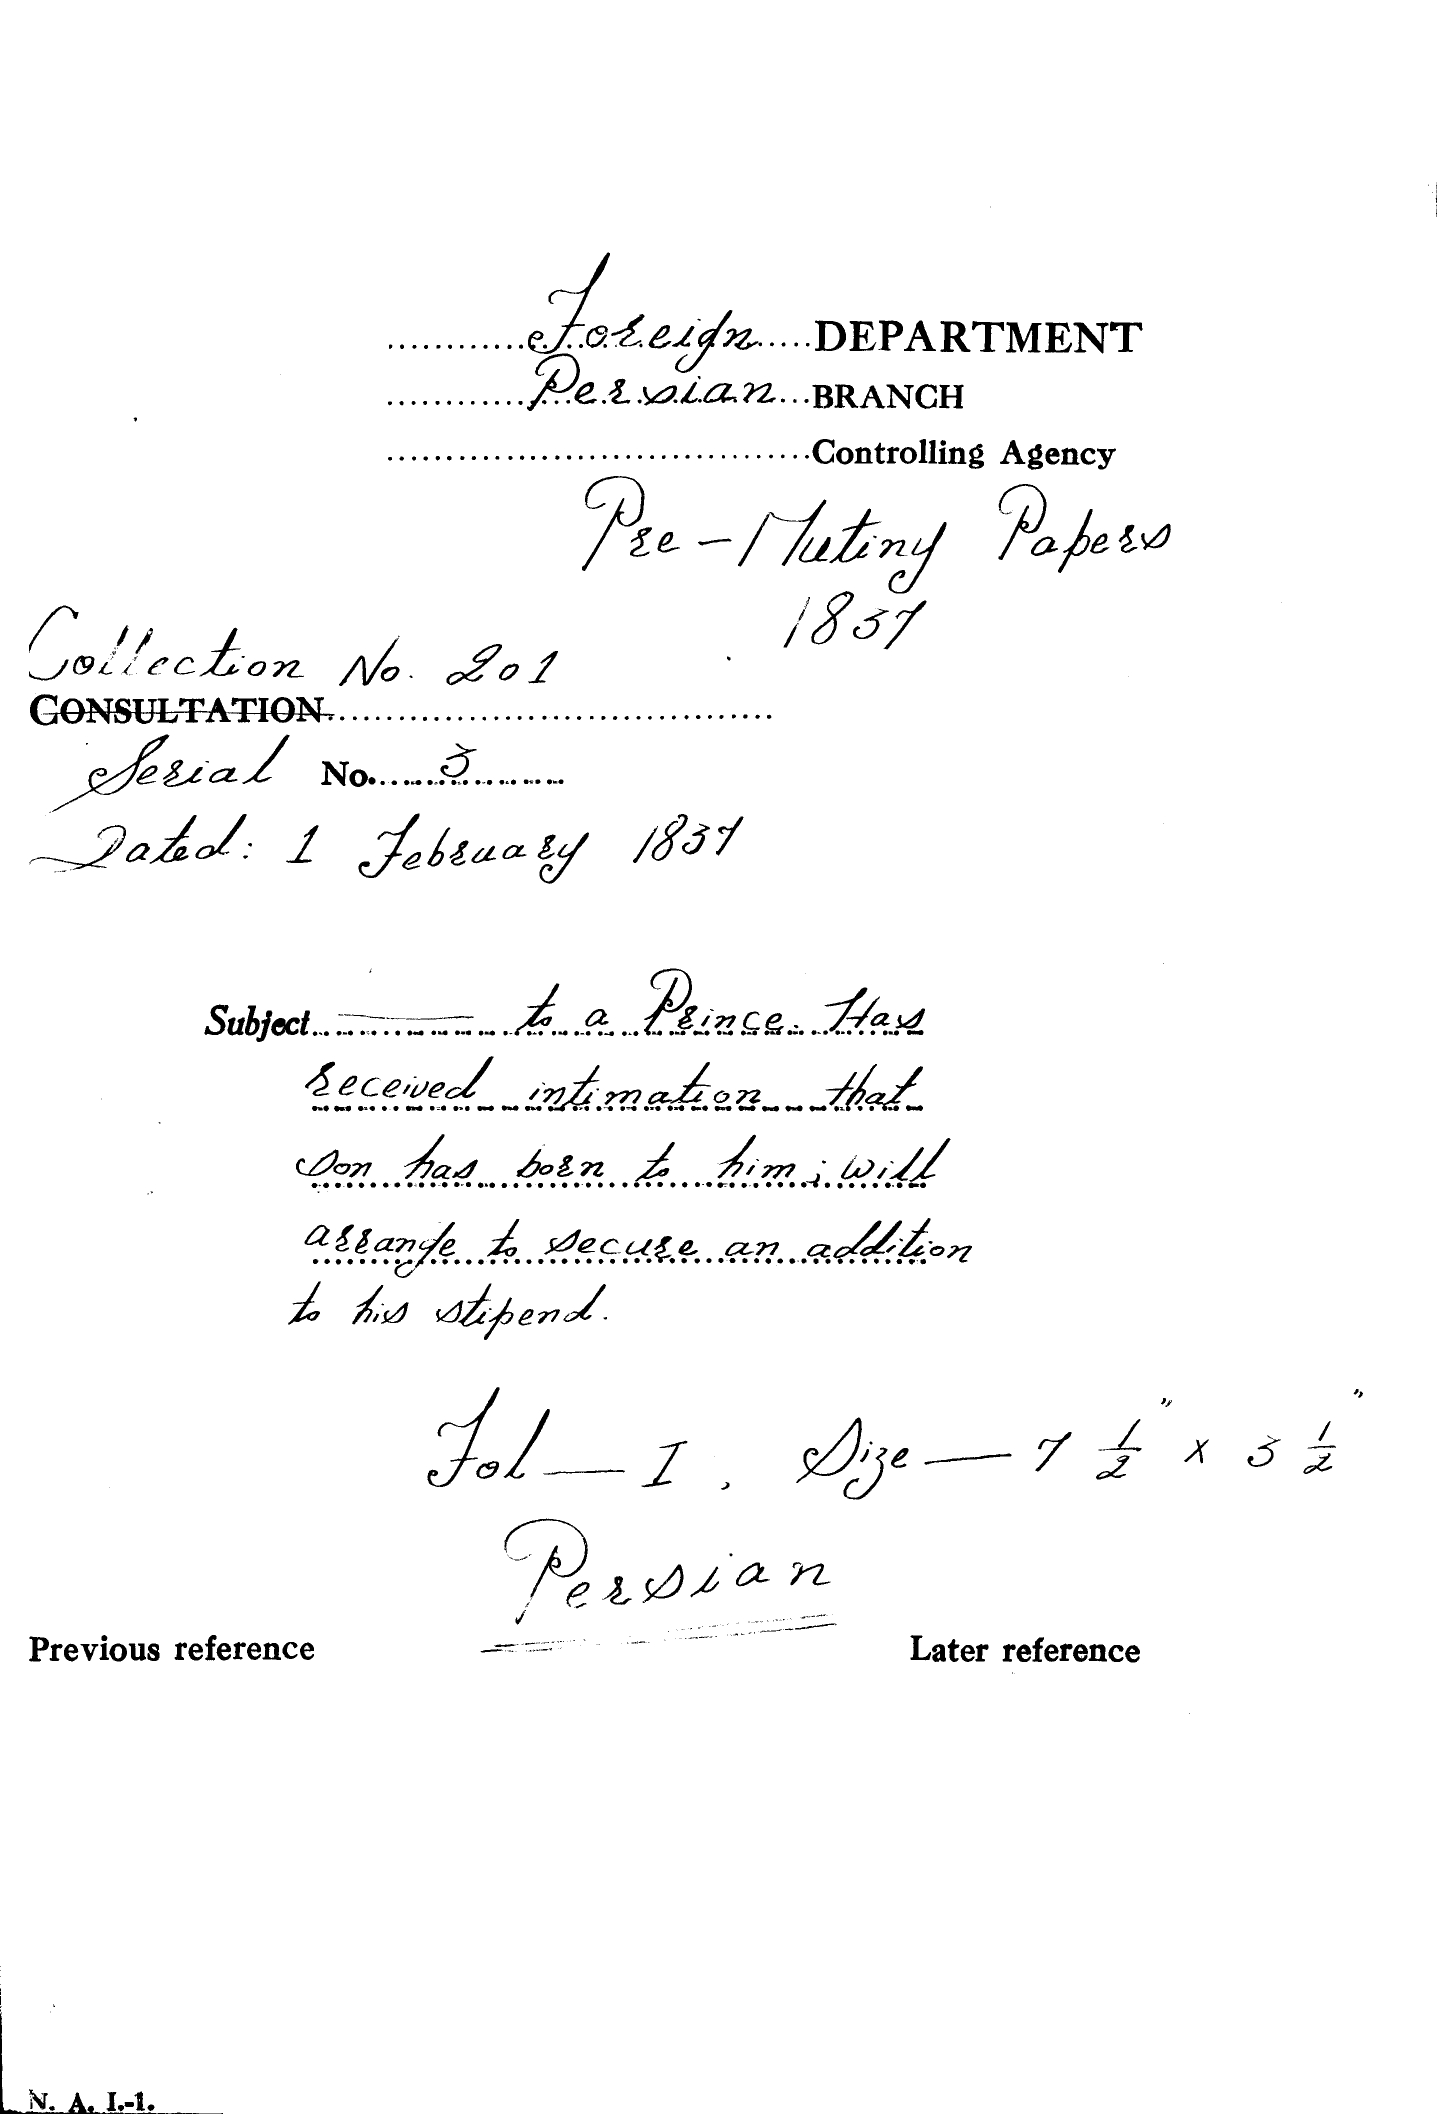 ............Foreign.....DEPARTMENT
............Persian...BRANCH
....................................Controlling Agency
Pre-Mutiny Papers
1837
Collection No. 201
CONSULTATION......................................
Serial No......3..........
Dated: 1 February 1837
Subject.......—— to a Prince. Has
received intimation that
son has born to him; will
arrange to secure an addition
to his stipend.
Fol — I, Size — 7 1/2" x 3 1/2"
Persian
Previous reference Later reference
N. A. I.-1.